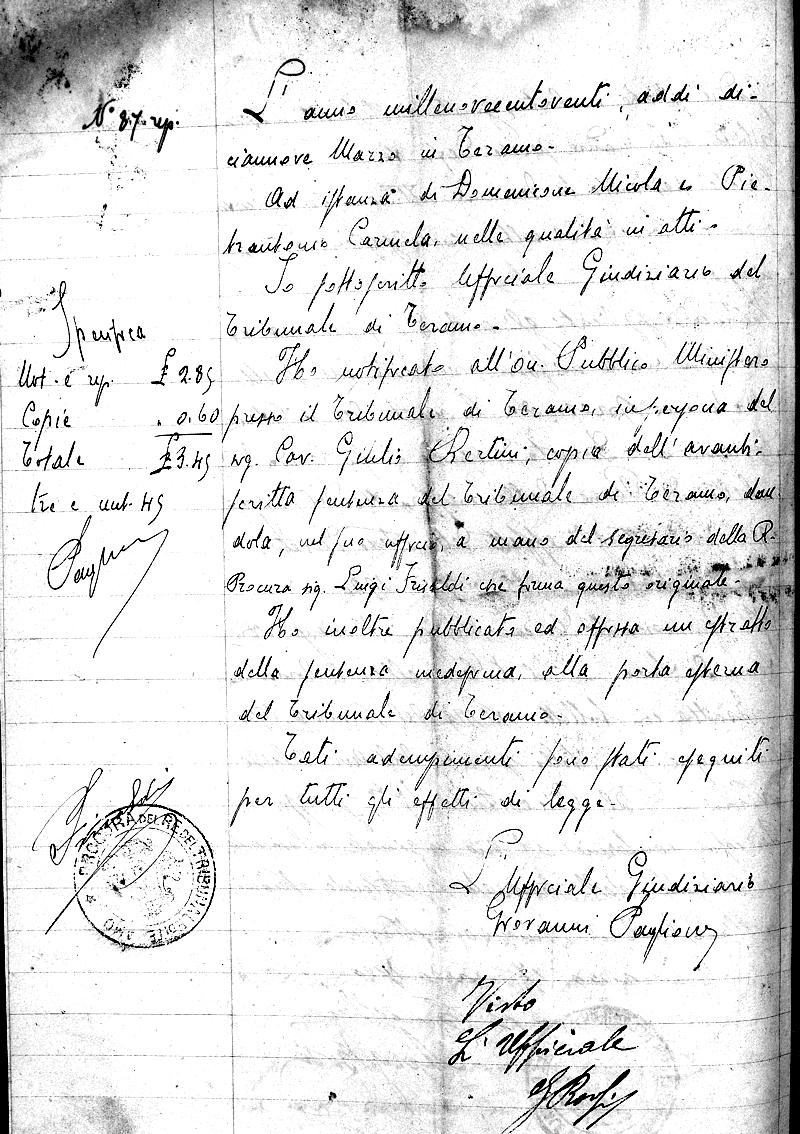 N° 87. rep.
L'anno millenovecentoventi, addì di-
ciannove Marzo in Teramo.
Ad istanza di Domenicone Nicola e Pie-
trantonio Carmela, nelle qualità in atti.
Io sottoscritto Ufficiale Giudiziario del
Tribunale di Teramo.
Ho notificato all'On. Pubblico Ministero
presso il Tribunale di Teramo, in persona del
sig. Cav. Giulio Bertini, copia dell'avanti
scritta sentenza del Tribunale di Teramo, dan
dola, nel suo ufficio, a mano del segretario della R.
Procura sig. Luigi che firma questo originale.
Ho inoltre pubblicato ed affissa un estratto
della sentenza medesima, alla porta esterna
del Tribunale di Teramo.
Tali adempimenti sono stati eseguiti
per tutti gli effetti di legge.
L'Ufficiale Giudiziario
Giovanni Paglione
Visto
L'Ufficiale
Specifica
Not. e rep. £ 2.85
Copie " 0.60
Totale £ 3.45
tre e cent. 45
Paglione
PROCURA DEL RE DEL TRIBUNALE DI TERAMO